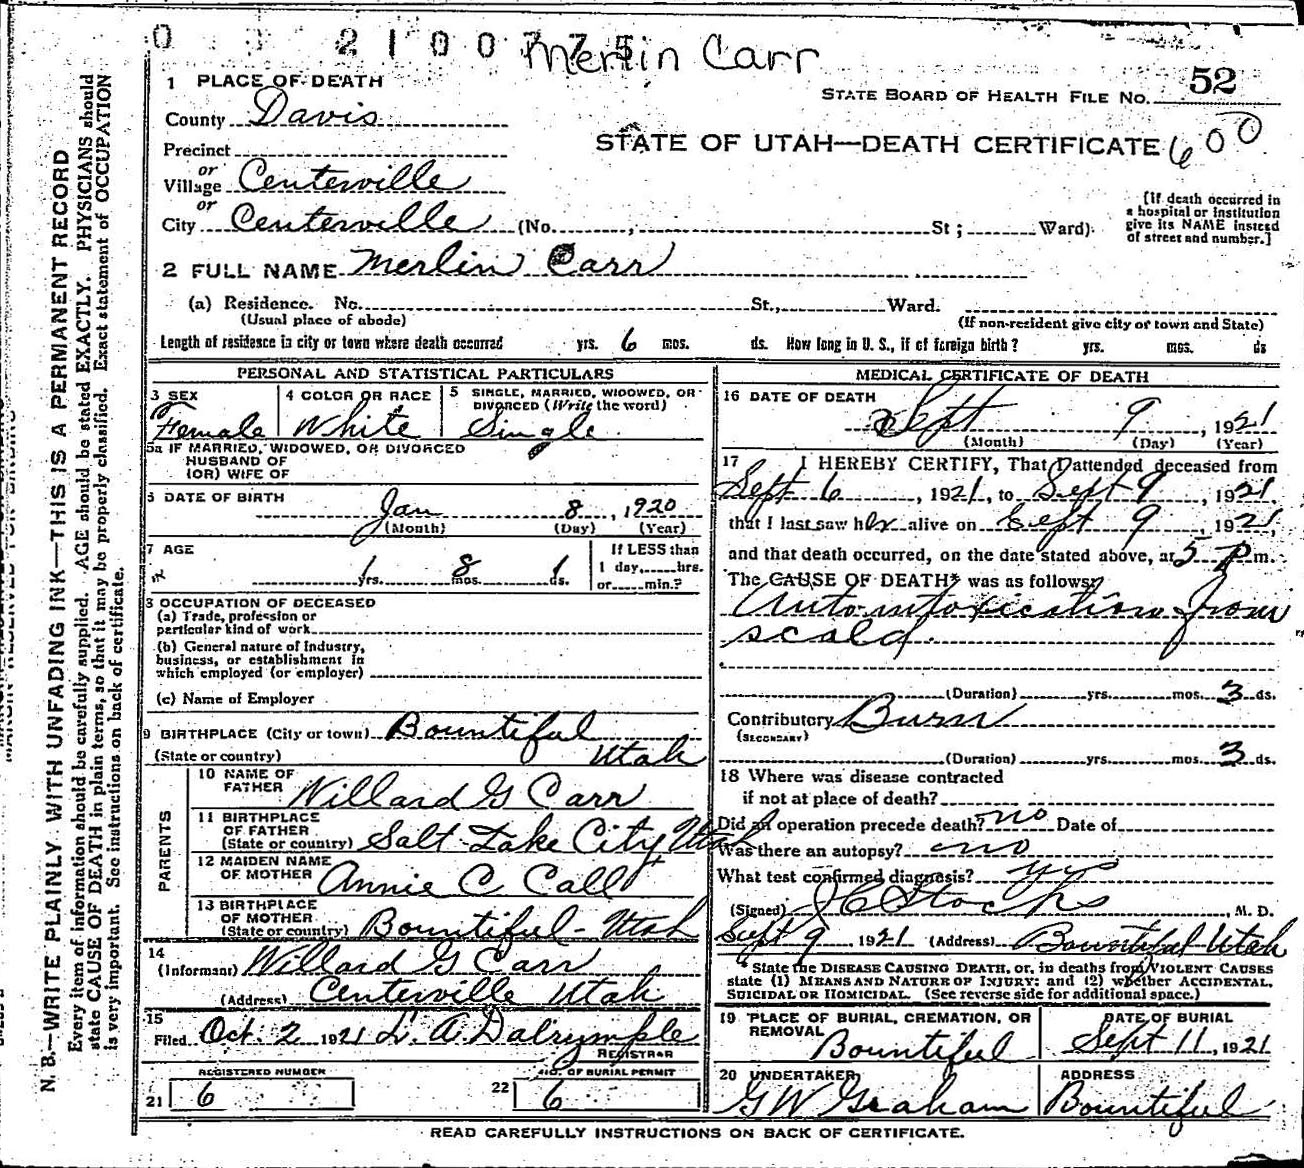 2100775
Merlin Carr
1 PLACE OF DEATH
52
STATE BOARD OF HEALTH FILE NO.
County Davis
STATE OF UTAH—DEATH CERTIFICATE 600
Precinct
or
Village Centerville
or
City Centerville (No. , St ; Ward)
[If death occurred in
a hospital or institution
give its NAME instead
of street and number.]
2 FULL NAME Merlin Carr
(a) Residence. No. St., Ward.
(Usual place of abode) (If non-resident give city or town and State)
Length of residence in city or town where death occurred yrs. 6 mos. ds. How long in U. S., if of foreign birth? yrs. mos. ds
PERSONAL AND STATISTICAL PARTICULARS
3 SEX
Female
4 COLOR OR RACE
White
5 SINGLE, MARRIED, WIDOWED, OR
DIVORCED (Write the word)
Single
5a IF MARRIED, WIDOWED, OR DIVORCED
HUSBAND OF
(OR) WIFE OF
6 DATE OF BIRTH Jan 8, 1920
(Month) (Day) (Year)
7 AGE
1 yrs. 8 mos. 1 ds.
If LESS than
1 day, hrs.
or min.?
8 OCCUPATION OF DECEASED
(a) Trade, profession or
particular kind of work
(b) General nature of Industry,
business, or establishment in
which employed (or employer)
(c) Name of Employer
9 BIRTHPLACE (City or town) Bountiful
(State or country) Utah
PARENTS
10 NAME OF
FATHER Willard G Carr
11 BIRTHPLACE
OF FATHER
(State or country) Salt Lake City Utah
12 MAIDEN NAME
OF MOTHER Annie C Call
13 BIRTHPLACE
OF MOTHER
(State or country) Bountiful - Utah
14
(Informant) Willard G Carr
(Address) Centerville Utah
15
Filed Oct. 2 1921 L. A. Dalrymple
REGISTRAR
REGISTERED NUMBER
21 6
NO. OF BURIAL PERMIT
22 6
MEDICAL CERTIFICATE OF DEATH
16 DATE OF DEATH
Sept 9, 1921
(Month) (Day) (Year)
17 I HEREBY CERTIFY, That I attended deceased from
Sept 6, 1921, to Sept 9, 1921
that I last saw her alive on Sept 9, 1921,
and that death occurred, on the date stated above, at 5 P m.
The CAUSE OF DEATH* was as follows:
Autointoxication from
scald.
(Duration) yrs. mos. 3 ds.
Contributory Burn
(SECONDARY)
(Duration) yrs. mos. 3 ds.
18 Where was disease contracted
if not at place of death?
Did an operation precede death? no Date of
Was there an autopsy? no
What test confirmed diagnosis? yes
(Signed) J C Stocks, M. D.
Sept 9 1921 (Address) Bountiful Utah
* State the DISEASE CAUSING DEATH, or, in deaths from VIOLENT CAUSES
state (1) MEANS AND NATURE OF INJURY; and (2) whether ACCIDENTAL,
SUICIDAL OR HOMICIDAL. (See reverse side for additional space.)
19 PLACE OF BURIAL, CREMATION, OR
REMOVAL
Bountiful
DATE OF BURIAL
Sept 11, 1921
20 UNDERTAKER
G W Graham
ADDRESS
Bountiful
READ CAREFULLY INSTRUCTIONS ON BACK OF CERTIFICATE.
N. B.—WRITE PLAINLY WITH UNFADING INK—THIS IS A PERMANENT RECORD
Every item of information should be carefully supplied. AGE should be stated EXACTLY. PHYSICIANS should
state CAUSE OF DEATH in plain terms, so that it may be properly classified. Exact statement of OCCUPATION
is very important. See instructions on back of certificate.